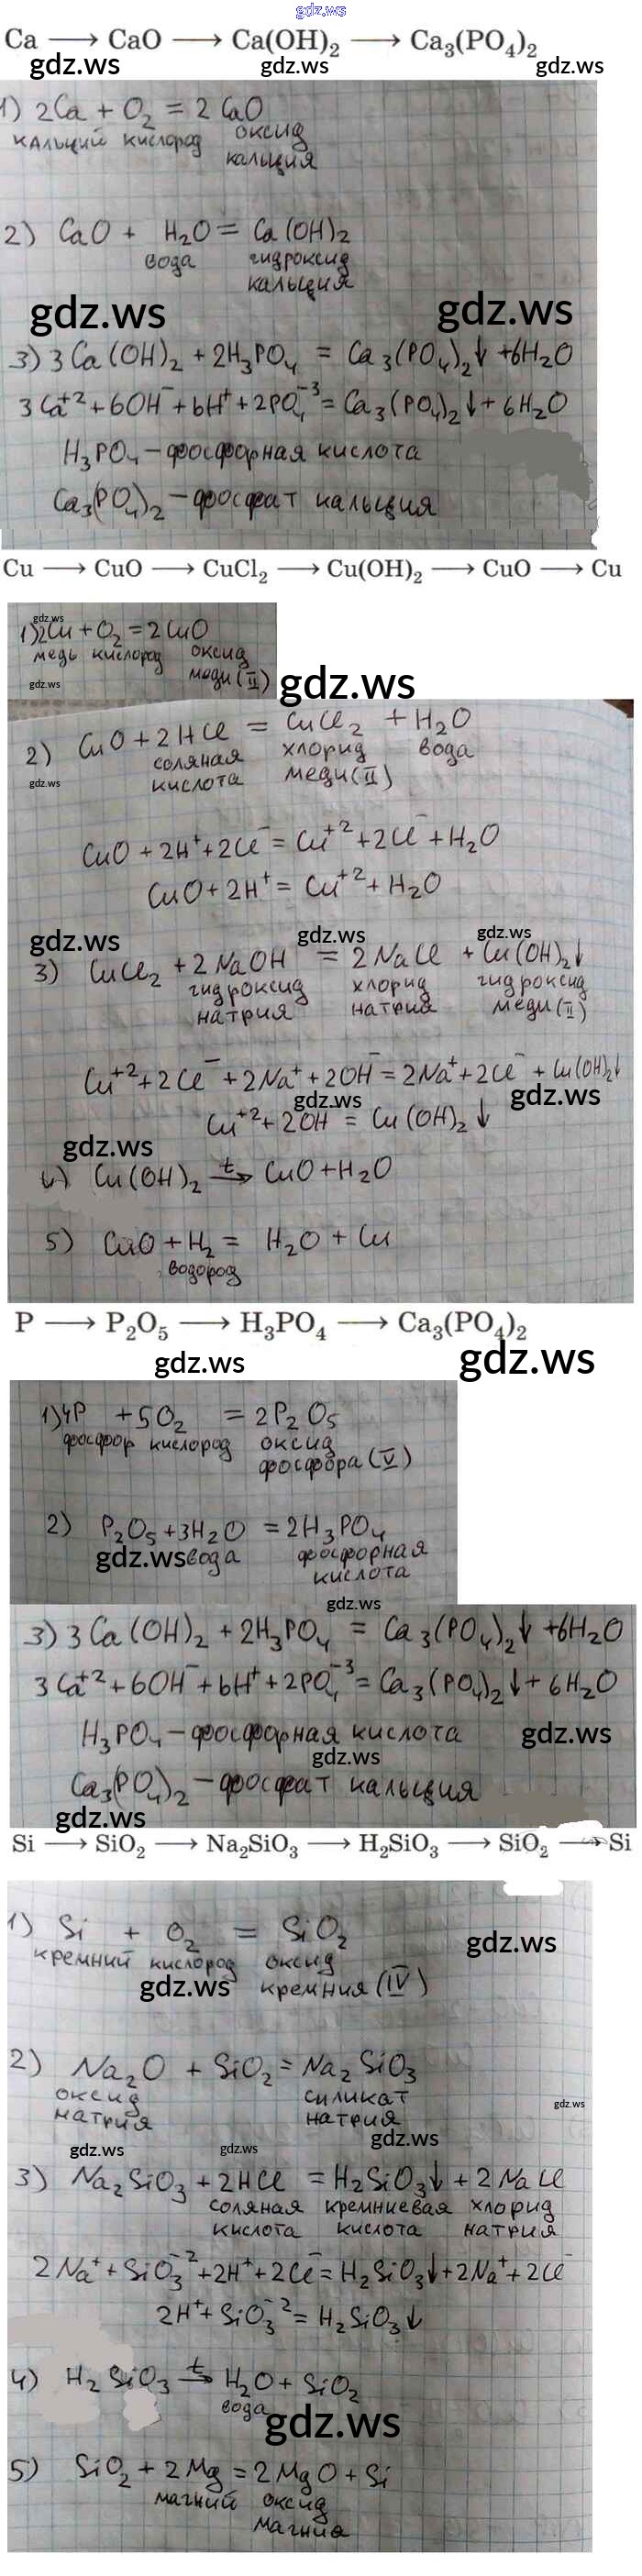 gdz.ws
Ca → CaO → Ca(OH)₂ → Ca₃(PO₄)₂
gdz.ws gdz.ws gdz.ws
1) 2Ca + O₂ = 2CaO
кальций кислород оксид
кальция
2) CaO + H₂O = Ca(OH)₂
вода гидроксид
кальция
gdz.ws gdz.ws
3) 3Ca(OH)₂ + 2H₃PO₄ = Ca₃(PO₄)₂↓ + 6H₂O
3Ca⁺² + 6OH⁻ + 6H⁺ + 2PO₄⁻³ = Ca₃(PO₄)₂↓ + 6H₂O
H₃PO₄ – фосфорная кислота
Ca₃(PO₄)₂ – фосфат кальция
Cu → CuO → CuCl₂ → Cu(OH)₂ → CuO → Cu
gdz.ws
1) 2Cu + O₂ = 2CuO
медь кислород оксид
gdz.ws меди (II)
gdz.ws
2) CuO + 2HCl = CuCl₂ + H₂O
соляная хлорид вода
gdz.ws кислота меди (II)
CuO + 2H⁺ + 2Cl⁻ = Cu⁺² + 2Cl⁻ + H₂O
CuO + 2H⁺ = Cu⁺² + H₂O
gdz.ws gdz.ws gdz.ws
3) CuCl₂ + 2NaOH = 2NaCl + Cu(OH)₂↓
гидроксид хлорид гидроксид
натрия натрия меди (II)
Cu⁺² + 2Cl⁻ + 2Na⁺ + 2OH⁻ = 2Na⁺ + 2Cl⁻ + Cu(OH)₂↓
gdz.ws gdz.ws
Cu⁺² + 2OH⁻ = Cu(OH)₂↓
gdz.ws
4) Cu(OH)₂ →t CuO + H₂O
5) CuO + H₂ = H₂O + Cu
водород
P → P₂O₅ → H₃PO₄ → Ca₃(PO₄)₂
gdz.ws gdz.ws
1) 4P + 5O₂ = 2P₂O₅
фосфор кислород оксид
фосфора (V)
2) P₂O₅ + 3H₂O = 2H₃PO₄
gdz.ws вода фосфорная
кислота
gdz.ws
3) 3Ca(OH)₂ + 2H₃PO₄ = Ca₃(PO₄)₂↓ + 6H₂O
3Ca⁺² + 6OH⁻ + 6H⁺ + 2PO₄⁻³ = Ca₃(PO₄)₂↓ + 6H₂O
H₃PO₄ – фосфорная кислота gdz.ws
gdz.ws
Ca₃(PO₄)₂ – фосфат кальция
gdz.ws
Si → SiO₂ → Na₂SiO₃ → H₂SiO₃ → SiO₂ → Si
1) Si + O₂ = SiO₂
gdz.ws
кремний кислород оксид
gdz.ws кремния (IV)
2) Na₂O + SiO₂ = Na₂SiO₃
оксид силикат gdz.ws
натрия натрия
gdz.ws gdz.ws gdz.ws
3) Na₂SiO₃ + 2HCl = H₂SiO₃↓ + 2NaCl
соляная кремниевая хлорид
кислота кислота натрия
2Na⁺ + SiO₃⁻² + 2H⁺ + 2Cl⁻ = H₂SiO₃↓ + 2Na⁺ + 2Cl⁻
2H⁺ + SiO₃⁻² = H₂SiO₃↓
4) H₂SiO₃ →t H₂O + SiO₂
вода
gdz.ws
5) SiO₂ + 2Mg = 2MgO + Si
магний оксид
магния